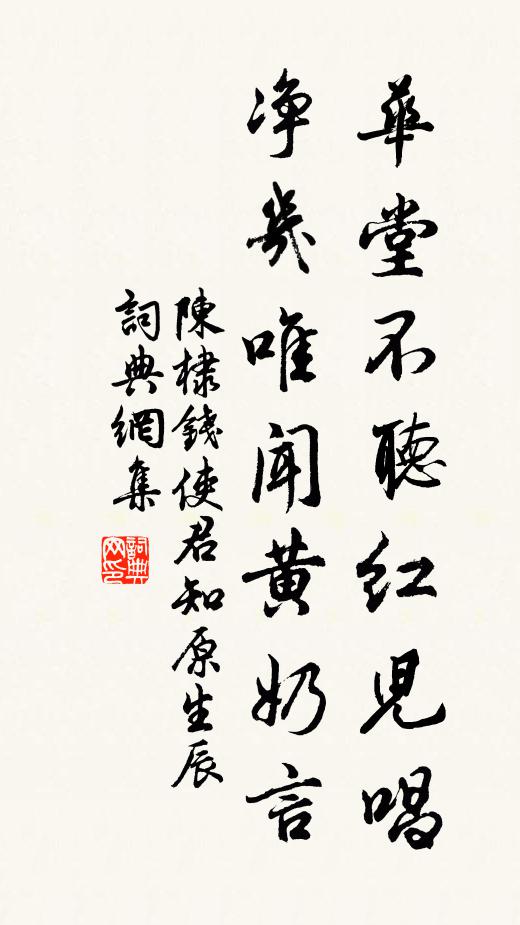 華堂不聽紅兒唱
净幾唯聞黃奶言
陳棣錢使君知原生辰
詞典網集
詞典网印